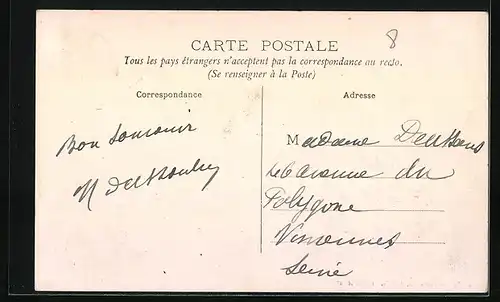 8
CARTE POSTALE
Tous les pays étrangers n'acceptent pas la correspondance au recto.
(Se renseigner à la Poste)
Correspondance
Bon Souvenir
Adresse
Madame
avenue du
Polygone
Vincennes
Seine